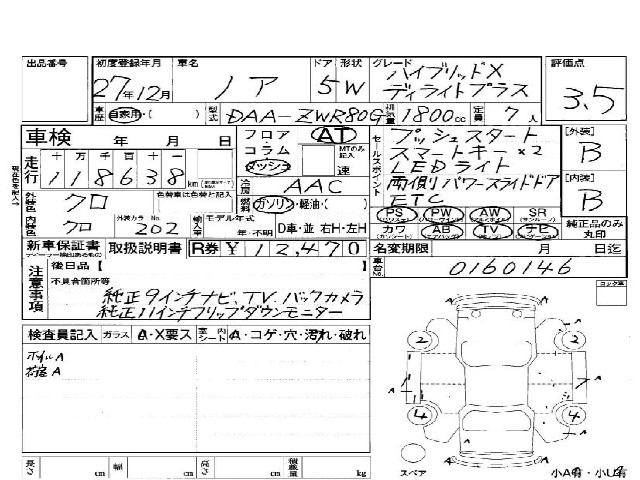 出品番号 初度登録年月 車名 ドア 形状 グレード 評価点
27年12月 ノア 5 W ハイブリッドX
ディライトプラス 3.5
車歴 自家用・( ) 型式 DAA-ZWR80G 排気量 1800cc 定員 7人
車検 年 月 日 フロア・ AT プッシュスタート [外装]
コラム スマートキー×2 B
走行 十万千百十一 ダッシュ MTのみ記入 速 LEDライト
118638 km 冷房 AAC 両側パワースライドドア [内装]
外装色 クロ 色替車は色替と記入 燃料 ガソリン・軽油・( ) ETC B
セールスポイント
PS PW AW SR
内装色 クロ 外装カラーNo. 202 輸入車 モデル年式 年・不明 D車・並 右H・左H カワ AB TV ナビ 純正品のみ丸印
新車保証書 取扱説明書 R券 ¥12,470 名変期限 月 日迄
注意事項 後日品【 】 車台No. 0160146
不具合箇所等
純正9インチナビ、TV、バックカメラ
純正11インチフリップダウンモニター
検査員記入 ガラス A・X要ス 室内シート A・コゲ・穴・汚れ・破れ
ホイルA
2 2
A A
1
4 4
スペア 小A有・小U有
長さ cm 幅 cm 高さ cm 積載量 kg